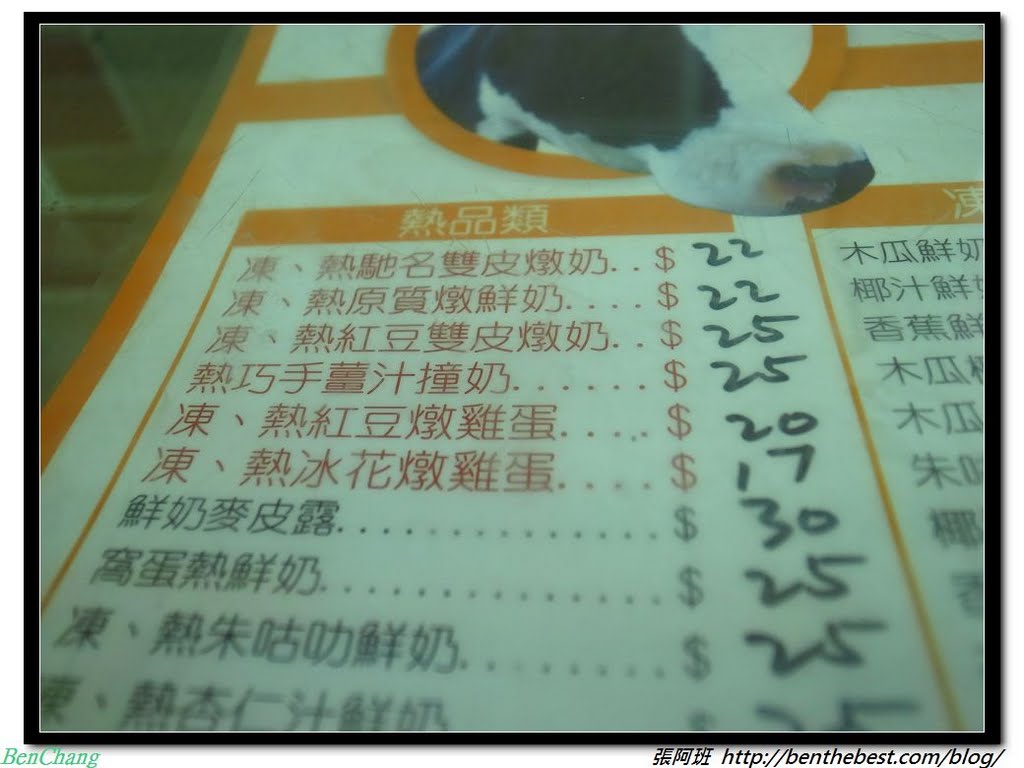 熱品類
凍、熱馳名雙皮燉奶..$ 22
凍、熱原質燉鮮奶....$ 22
凍、熱紅豆雙皮燉奶..$ 25
熱巧手薑汁撞奶.......$ 25
凍、熱紅豆燉雞蛋.....$ 20
凍、熱冰花燉雞蛋.....$ 17
鮮奶麥皮露...............$ 30
窩蛋熱鮮奶................$ 25
凍、熱朱咕叻鮮奶.........$ 25
凍、熱杏仁汁鮮奶 25
凍
木瓜鮮奶
椰汁鮮奶
香蕉鮮
木瓜椰
木瓜
朱咕
椰
香
BenChang
張阿班 http://benthebest.com/blog/